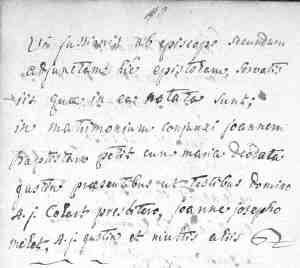 Uti justionis ab episcopo secundum
adjunctam hic epistolam, servatis
iis quae in ea notata sunt,
in matrimonium conjunxi joannem
Baptistam petit cum maria Deodata
gustin praesentibus ut testibus domino
A.j. Colart presbitero, joanne josepho
nelet, A.j gustin et multis aliis